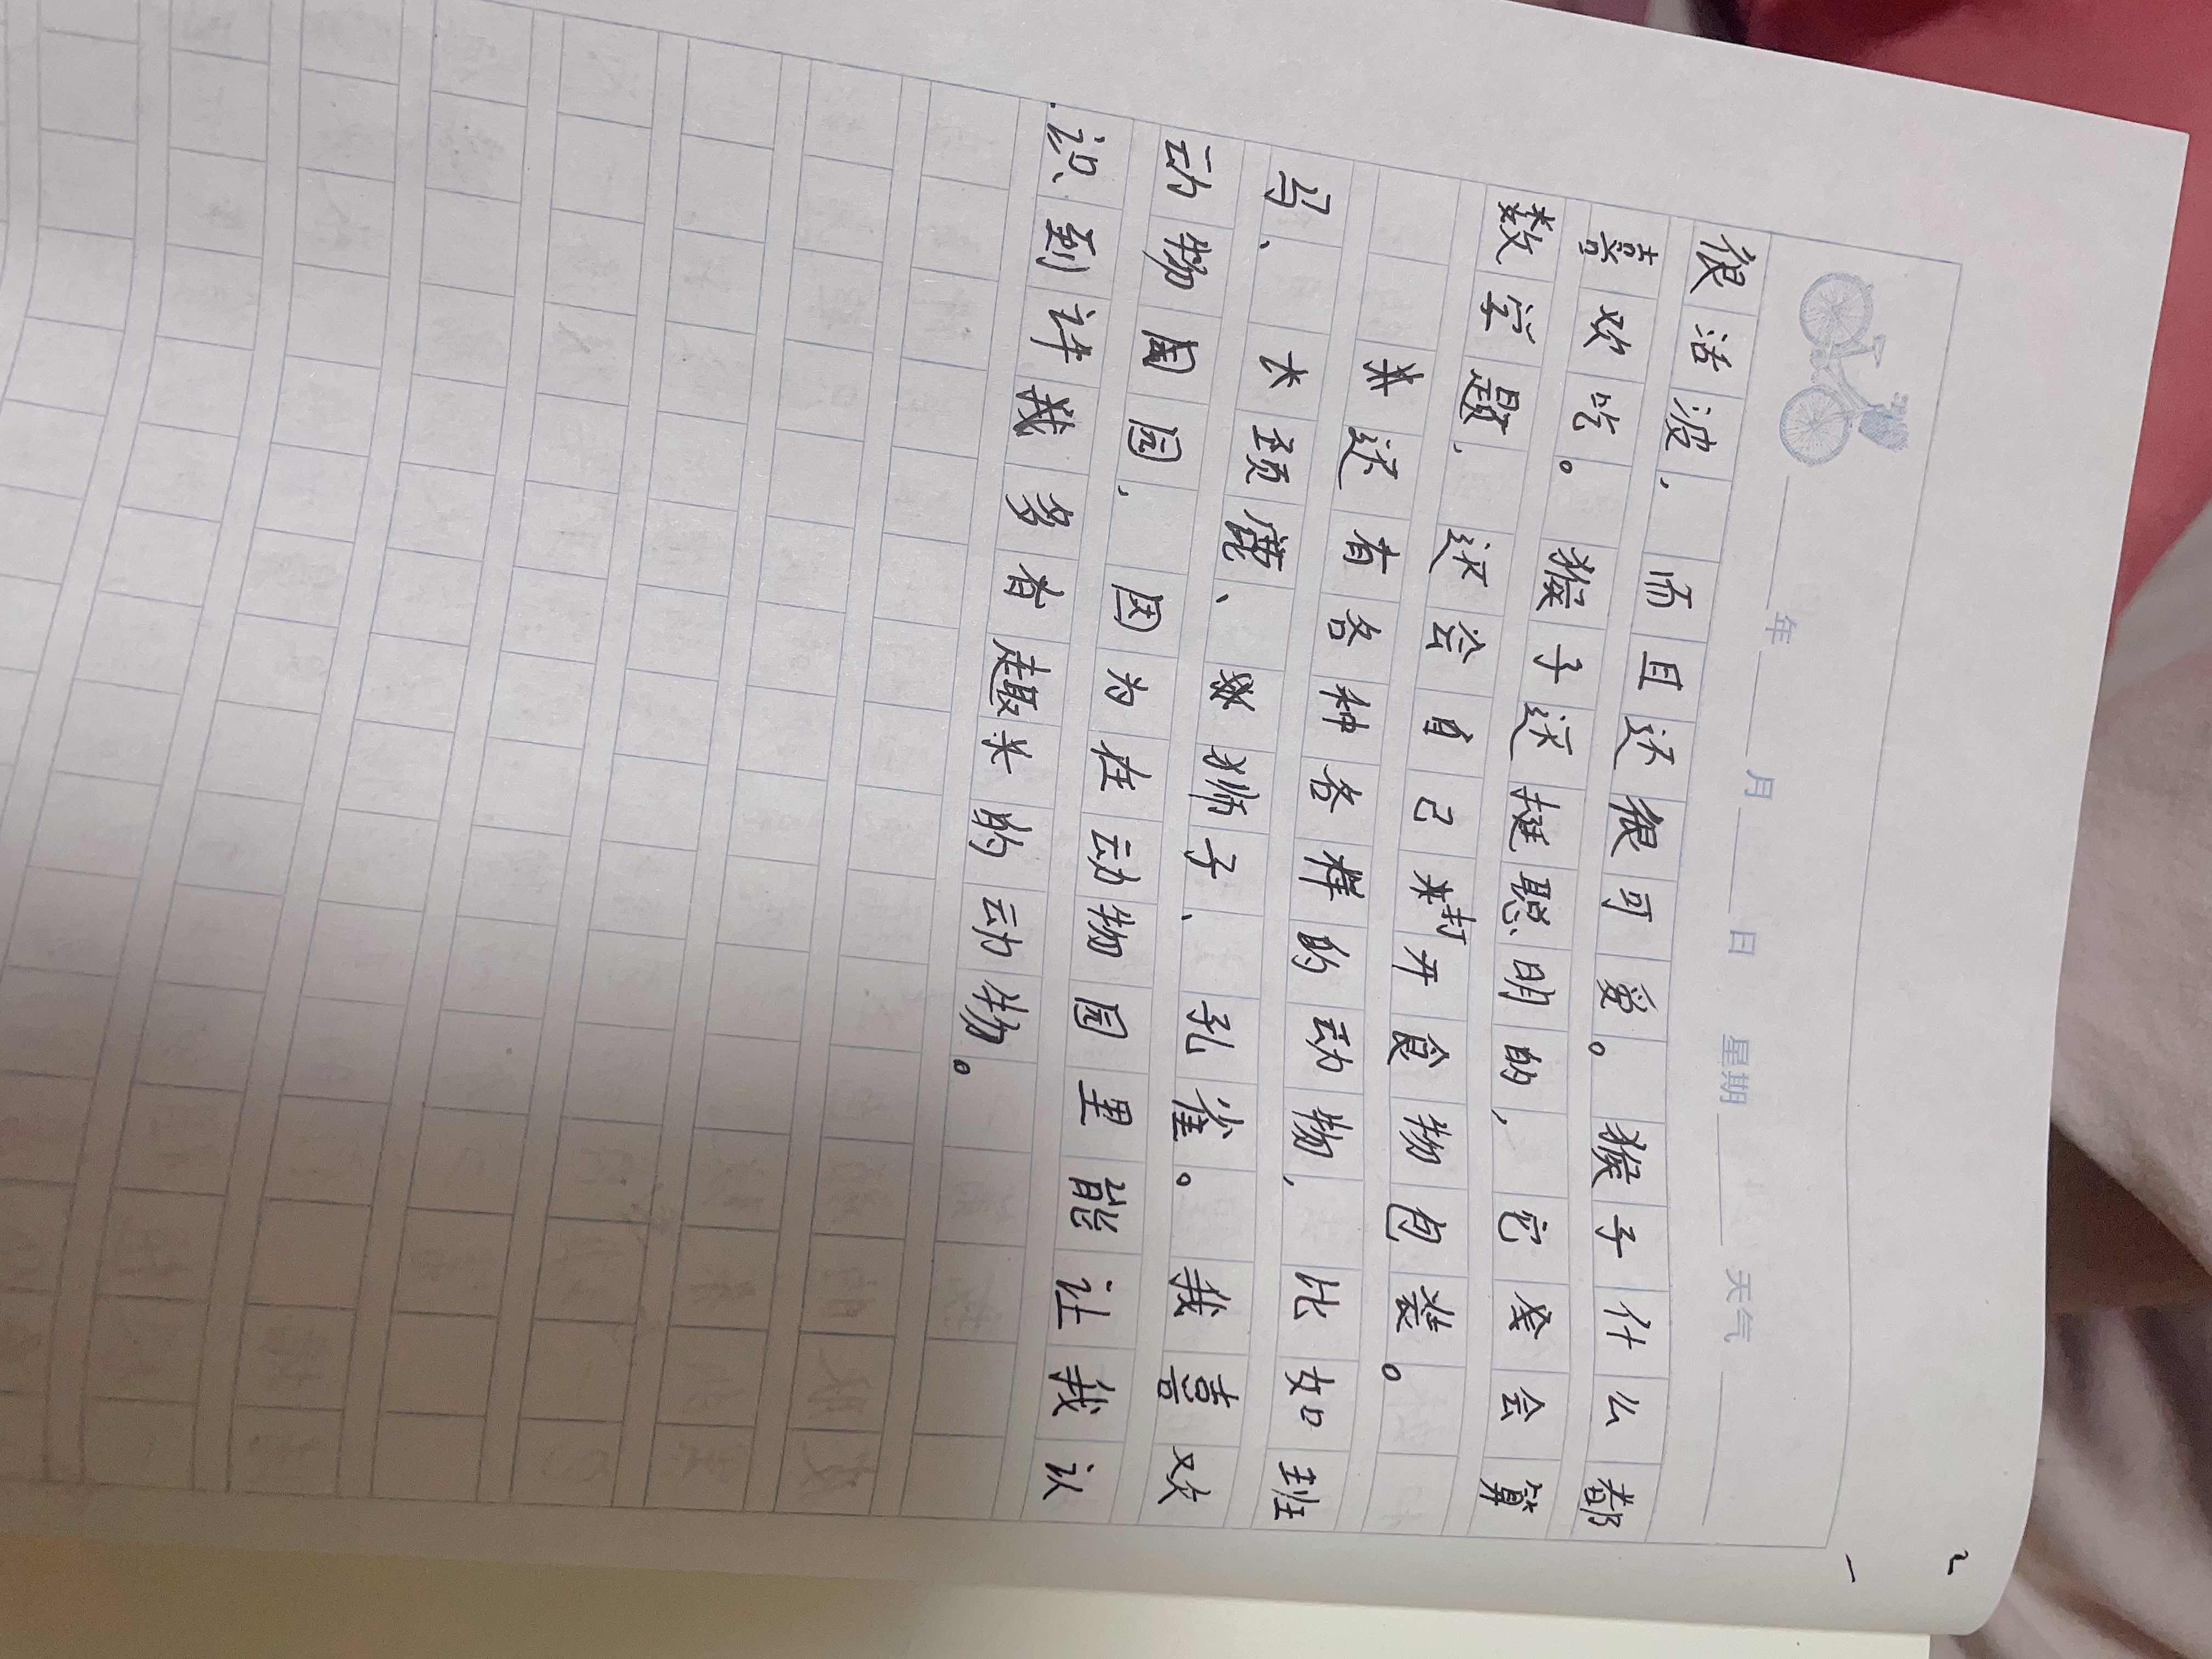 年 月 日 星期 天气
很活波，而且还很可爱。猴子什么都
喜欢吃。猴子还挺聪明的，它会算
数学题，还会自己打开食物包装。
还有各种各样的动物，比如班
马、长颈鹿、狮子、孔雀。我喜欢
动物园，因为在动物园里能让我认
识到许多有趣的动物。